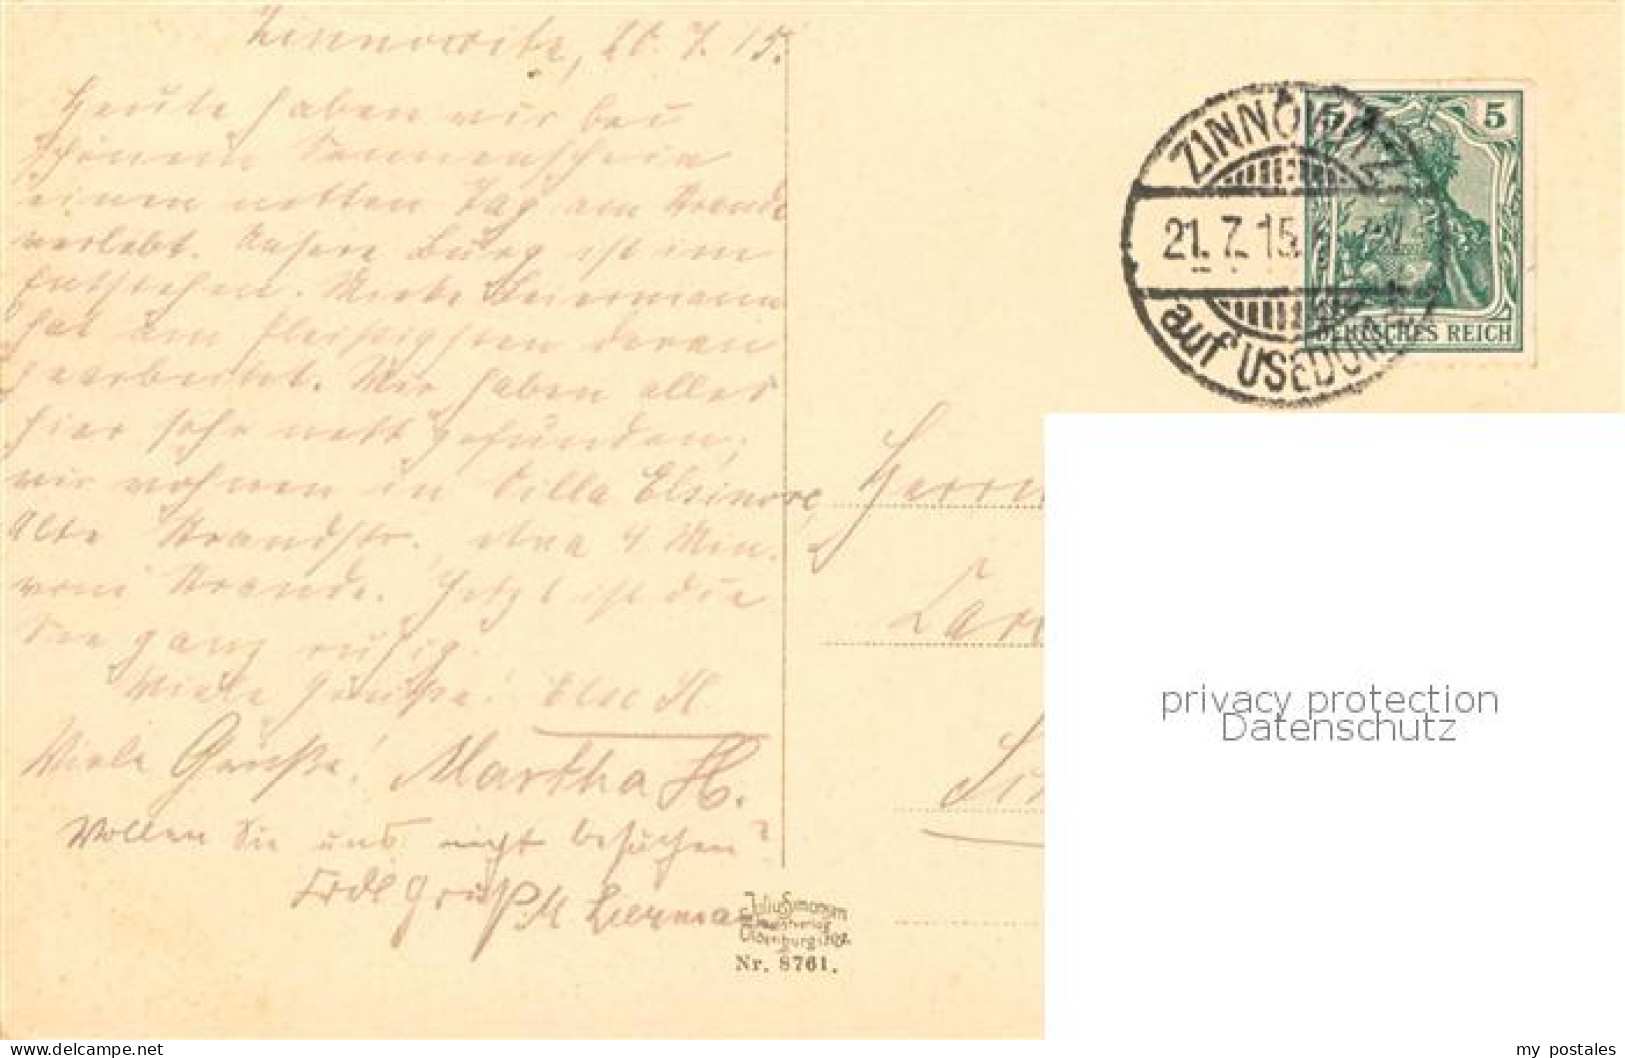 Zinnowitz, 20.7.15.
Heute haben wir bei
schönem Sonnenschein
einen netten Tag am Strande
verlebt. Unsere Burg ist im
Entstehen. Miete Beiermann
hat am fleißigsten daran
gearbeitet. Wir haben alles
hier sehr nett gefunden;
wir wohnen in Villa Elsinore,
Alte Strandstr., etwa 4 Min.
vom Strande. Jetzt ist die
See ganz ruhig.
Viele Grüße! Else H.
Viele Grüße! Martha H.
Wollen Sie uns nicht besuchen?
Frdl Gruß M
ZINNOWITZ
21.7.15.
auf USEDOM
5 5
DEUTSCHES REICH
Herrn
privacy protection
Datenschutz
Julius Simonsen
Kunstverlag
Oldenburg i/Hol.
Nr. 8761.
delcampe.net
my_postales